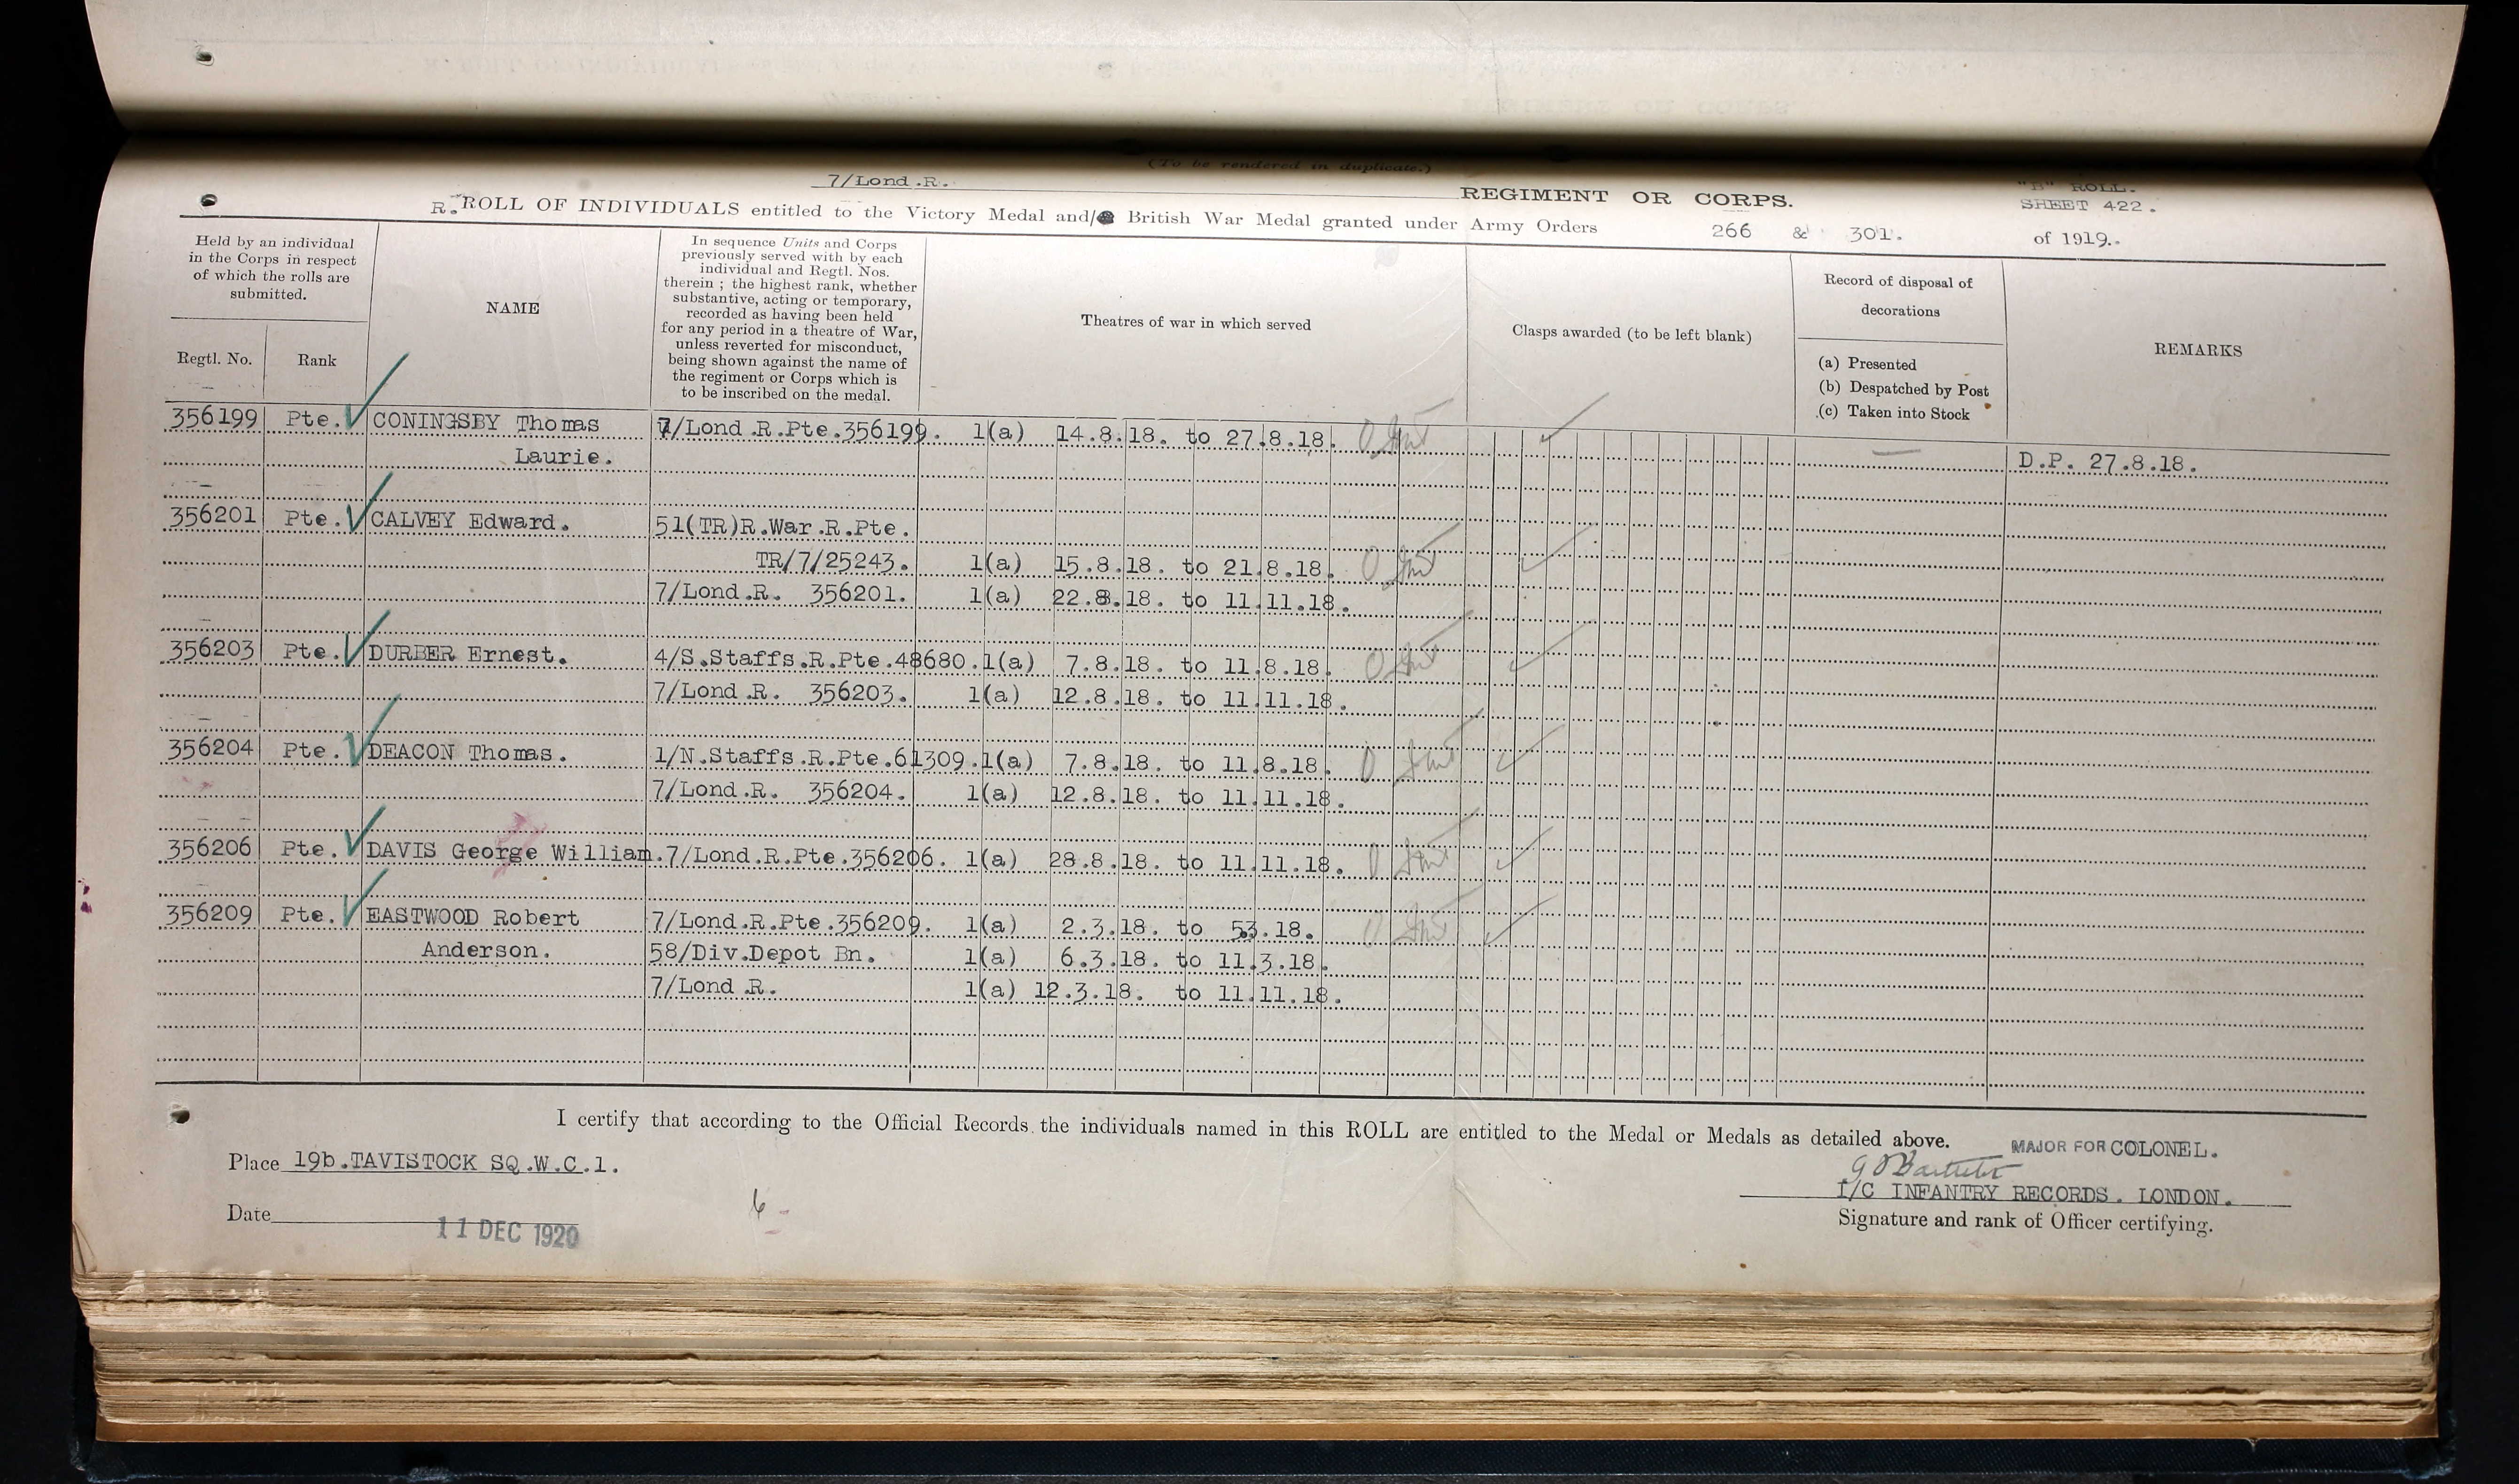 (To be rendered in duplicate.)
7/Lond.R. REGIMENT OR CORPS. "B" ROLL.
SHEET 422.
R. ROLL OF INDIVIDUALS entitled to the Victory Medal and/ British War Medal granted under Army Orders 266 & 301. of 1919.
Held by an individual
in the Corps in respect
of which the rolls are
submitted.
Regtl. No. Rank
NAME
In sequence Units and Corps
previously served with by each
individual and Regtl. Nos.
therein ; the highest rank, whether
substantive, acting or temporary,
recorded as having been held
for any period in a theatre of War,
unless reverted for misconduct,
being shown against the name of
the regiment or Corps which is
to be inscribed on the medal.
Theatres of war in which served
Clasps awarded (to be left blank)
Record of disposal of
decorations
(a) Presented
(b) Despatched by Post
(c) Taken into Stock
REMARKS
356199 Pte. CONINGSBY Thomas 7/Lond.R.Pte.356199. 1(a) 14.8.18. to 27.8.18.
Laurie. D.P. 27.8.18.
356201 Pte. CALVEY Edward. 51(TR)R.War.R.Pte.
TR/7/25243. 1(a) 15.8.18. to 21.8.18.
7/Lond.R. 356201. 1(a) 22.8.18. to 11.11.18.
356203 Pte. DURBER Ernest. 4/S.Staffs.R.Pte.48680. 1(a) 7.8.18. to 11.8.18.
7/Lond.R. 356203. 1(a) 12.8.18. to 11.11.18.
356204 Pte. DEACON Thomas. 1/N.Staffs.R.Pte.61309. 1(a) 7.8.18. to 11.8.18.
7/Lond.R. 356204. 1(a) 12.8.18. to 11.11.18.
356206 Pte. DAVIS George William. 7/Lond.R.Pte.356206. 1(a) 28.8.18. to 11.11.18.
356209 Pte. EASTWOOD Robert 7/Lond.R.Pte.356209. 1(a) 2.3.18. to 5.3.18.
Anderson. 58/Div.Depot Bn. 1(a) 6.3.18. to 11.3.18.
7/Lond.R. 1(a) 12.3.18. to 11.11.18.
I certify that according to the Official Records the individuals named in this ROLL are entitled to the Medal or Medals as detailed above.
MAJOR FOR COLONEL.
Place 19b.TAVISTOCK SQ.W.C.1.
I/C INFANTRY RECORDS. LONDON.
Signature and rank of Officer certifying.
Date 11 DEC 1920
6